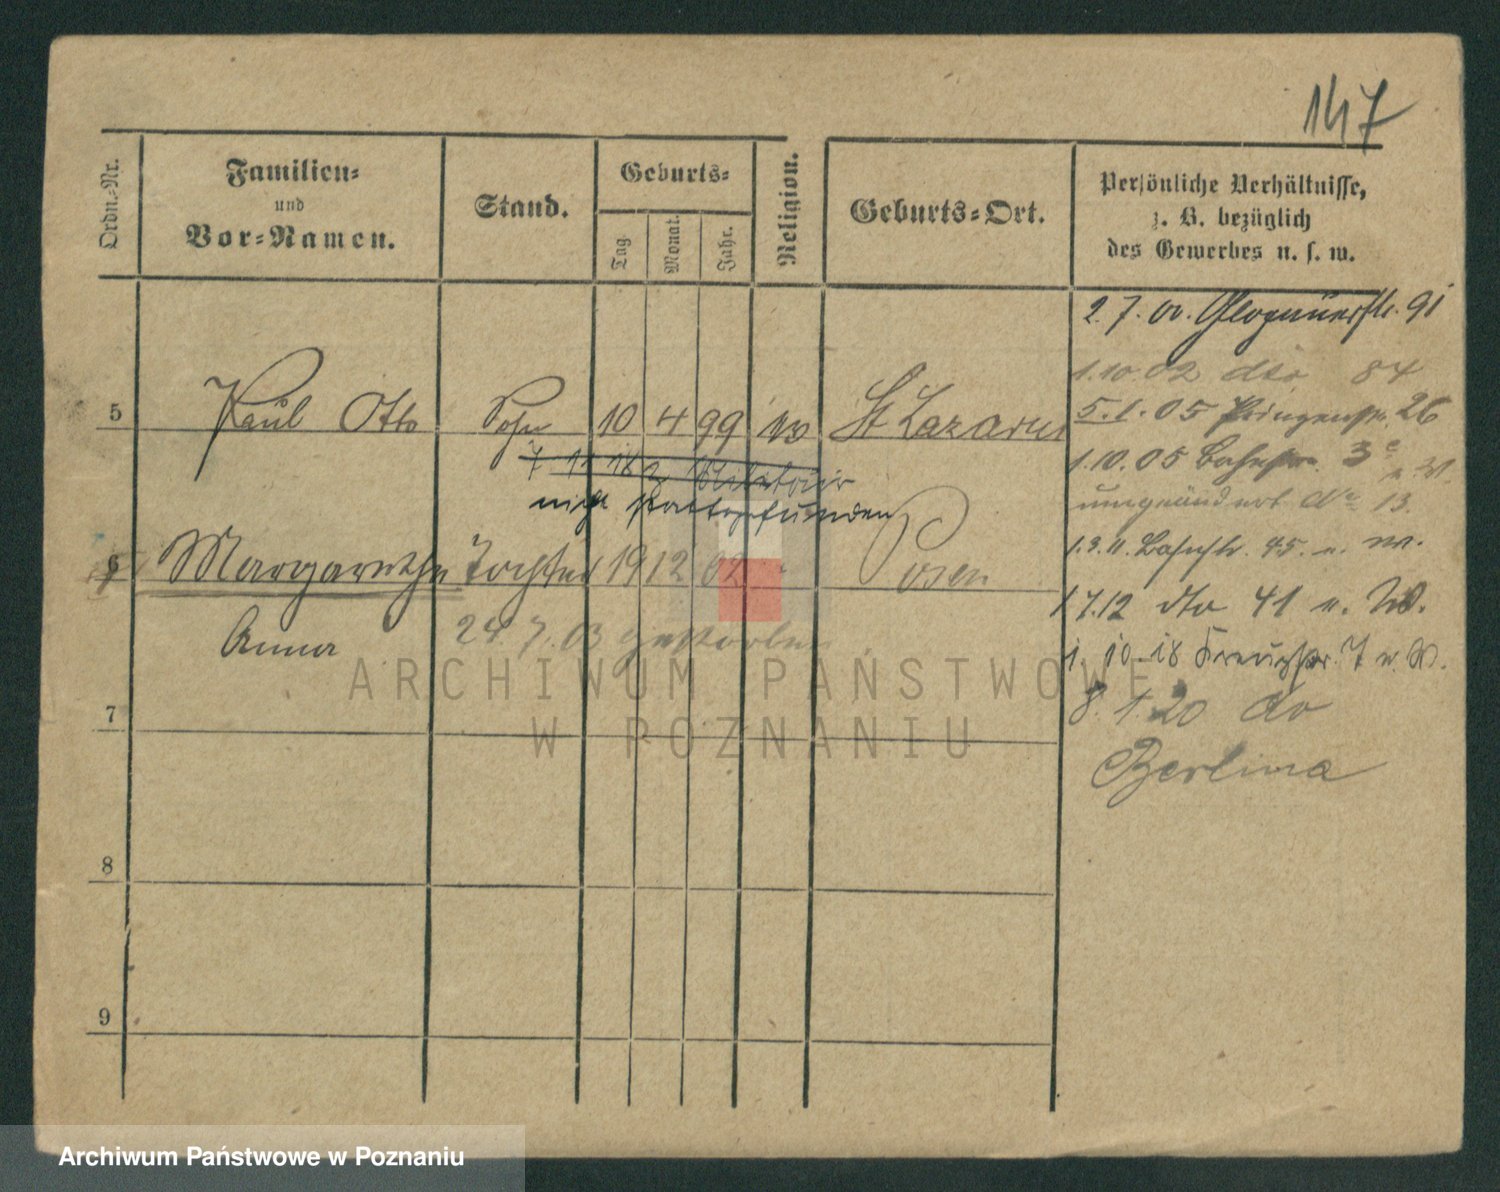 147
Ordn.-Nr.
Familien-
und
Vor-Namen.
Stand.
Geburts-
Tag
Monat.
Jahr.
Religion.
Geburts-Ort.
Persönliche Verhältnisse,
z. B. bezüglich
des Gewerbes u. s. w.
2. 7. 00. Glogauerstr. 91
1.10.02 dto 84
5 Paul Otto Sohn 10 4 99 St Lazarus
5.1.05 Prinzenstr. 26
1.10.05 Bahnstr. 3
7 11 18 z Militair
nicht stattgefunden
umgeändert No 13.
1.3.11. Bahnstr. 45. u. W.
6 Margarethe Tochter 19 12 02 Posen
1.7.12 dto 41 u. W.
Anna 24. 7. 03 gestorben
1. 10. 18 Kreuzstr. 7 u. W.
8. 1 20 do
Berlina
7
8
9
ARCHIWUM PAŃSTWOWE
W POZNANIU
Archiwum Państwowe w Poznaniu